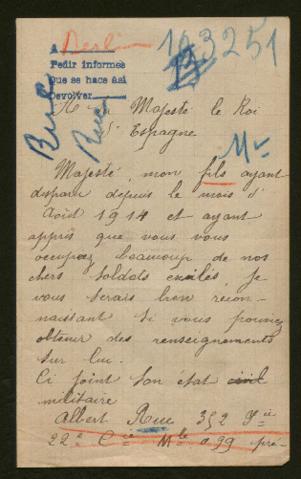 A Berlin
Pedir informes
Que se hace ási
Devolver
163251
A Sa Majesté le Roi
d'Espagne
Mr
Majesté, mon fils ayant
disparu depuis le mois d'
Août 1914 et ayant
appris que vous vous
occupez beaucoup de nos
chers soldats exilés je
vous serais bien recon-
naissant si vous pouvez
obtenir des renseignements
sur lui.
Ci joint son état civil
militaire
Albert Rue 352
22e Cie Mle 099